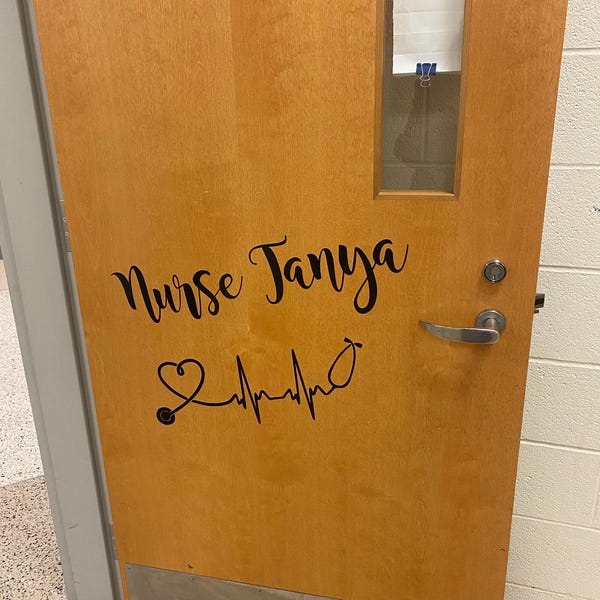 Nurse Tanya